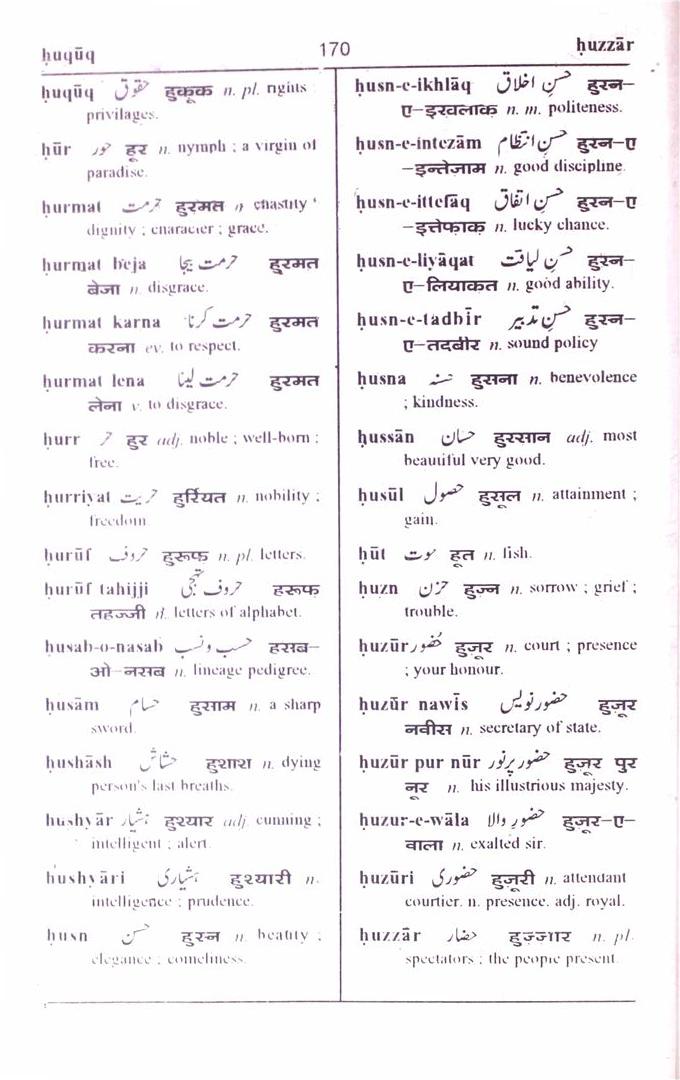 ḥuqūq
170
ḥuzzār
ḥuqūq حقوق हुकूक n. pl. rights
privilages.
ḥūr حور हूर n. nymph ; a virgin of
paradise.
ḥurmat حرمت हुरमत n chastity
dignity ; character ; grace.
ḥurmat beja حرمت بیجا हुरमत
बेजा n. disgrace.
ḥurmat karna حرمت کرنا हुरमत
करना ev. to respect.
ḥurmat lena حرمت لینا हुरमत
लेना v. to disgrace.
ḥurr حر हुर adj. noble ; well-born ;
free.
ḥurriyat حریت हुर्रियत n. nobility ;
freedom
ḥurūf حروف हुरूफ़ n. pl. letters.
ḥurūf tahijji حروف تہجی हरूफ
तहज्जी n. letters of alphabet.
ḥusab-o-nasab حسب و نسب हसब-
ओ-नसब n. lineage pedigree.
ḥusām حسام हुसाम n. a sharp
sword.
ḥushāsh حشاش हुशाश n. dying
person's last breaths.
hushyār ہشیار हुश्यार adj. cunning ;
intelligent ; alert.
hushyāri ہشیاری हुश्यारी n.
intelligence ; prudence.
ḥusn حسن हुस्न n. beatity ;
elegance ; comeliness.
ḥusn-e-ikhlāq حسنِ اخلاق हुस्न-
ए-इख़लाक़ n. m. politeness.
ḥusn-e-intezām حسنِ انتظام हुस्न-ए
-इन्तेज़ाम n. good discipline.
ḥusn-e-ittefāq حسنِ اتفاق हुस्न-ए
-इत्तेफाक़ n. lucky chance.
ḥusn-e-liyāqat حسنِ لیاقت हुस्न-
ए-लियाकत n. good ability.
ḥusn-e-tadbīr حسنِ تدبیر हुस्न-
ए-तदबीर n. sound policy
ḥusna حسنہ हुसना n. benevolence
; kindness.
ḥussān حسان हुस्सान adj. most
beautiful very good.
ḥusūl حصول हुसूल n. attainment ;
gain.
ḥūt حوت हूत n. fish.
ḥuzn حزن हुज़्न n. sorrow ; grief ;
trouble.
ḥuzūr حضور हुज़ूर n. court ; presence
; your honour.
ḥuzūr nawīs حضور نویس हुज़ूर
नवीस n. secretary of state.
ḥuzūr pur nūr حضور پرنور हुज़ूर पुर
नूर n. his illustrious majesty.
ḥuzur-e-wāla حضورِ والا हुज़ूर-ए-
वाला n. exalted sir.
ḥuzūri حضوری हुज़ूरी n. attendant
courtier. n. presence. adj. royal.
ḥuzzār حضار हुज़्ज़ार n. pl.
spectators ; the people present.